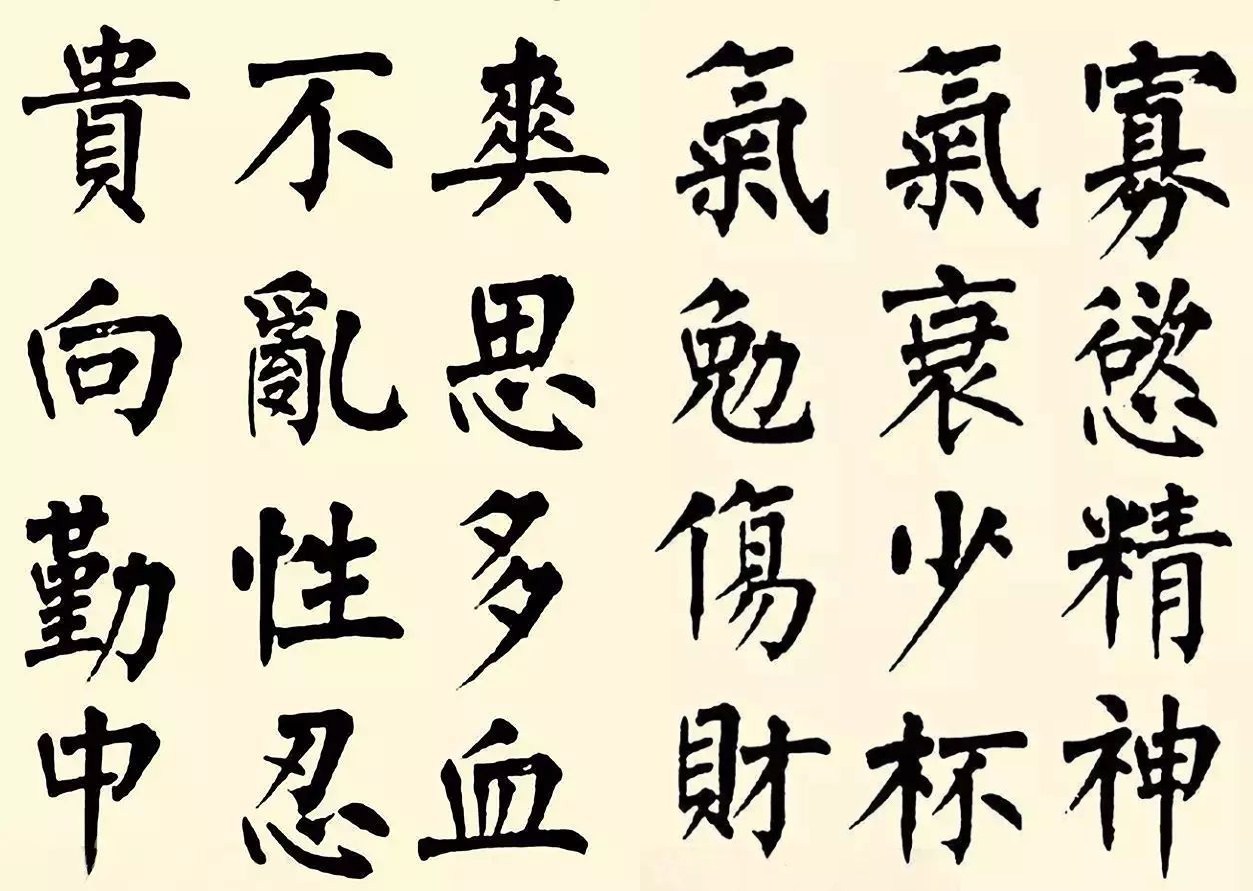 寡慾精神
氣衰少杯
氣勉傷財
爽思多血
不亂性忍
貴向勤中